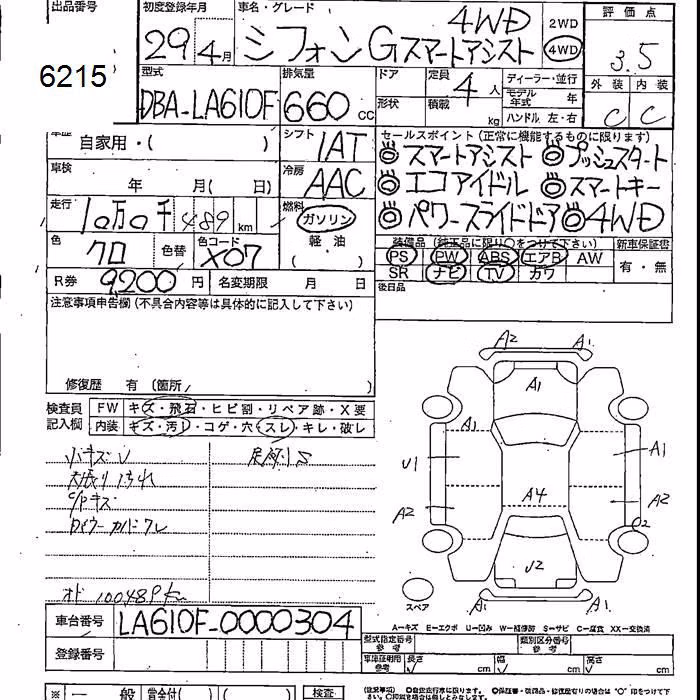 出品番号
6215
初度登録年月
29年4月
車名・グレード
4WD
シフォン Gスマートアシスト
2WD
4WD
評価点
3.5
外装 内装
C C
型式
DBA-LA610F
排気量
660 cc
ドア
形状
定員
4人
積載
kg
ディーラー・並行
モデル年式 年
ハンドル 左・右
車歴
自家用・( )
シフト
IAT
車検
年 月( 日)
冷房
AAC
走行
10万0千489km
燃料
ガソリン
軽油
色
クロ
色替
色コード
X07
R券
9200円
名変期限 月 日
セールスポイント(正常に機能するものに限ります)
◎スマートアシスト ◎プッシュスタート
◎エコアイドル ◎スマートキー
◎パワースライドドア ◎4WD
装備品(純正品に限り○をつけて下さい)
PS PW ABS エアB AW
SR ナビ TV カワ
新車保証書
有・無
後日品
注意事項申告欄(不具合内容等は具体的に記入して下さい)
修復歴 有(箇所 )
検査員記入欄
FW キズ・飛石・ヒビ割・リペア跡・X要
内装 キズ・汚レ・コゲ・穴・スレ・キレ・破レ
小キズV
C/Pキズ
オド 100489km
A2 A1
A1
A1
A1
U1
A2
A4
A2
U2
A1 A1
スペア
A=キズ E=エクボ U=凹み W=補修跡 S=サビ C=腐食 XX=交換済
車台番号
LA610F-0000304
登録番号
型式指定番号 参考
類別区分番号 参考
車庫証明用 参考
長さ cm
幅 cm
高さ cm
※ 一般 賞金付( ) ( ) 検査